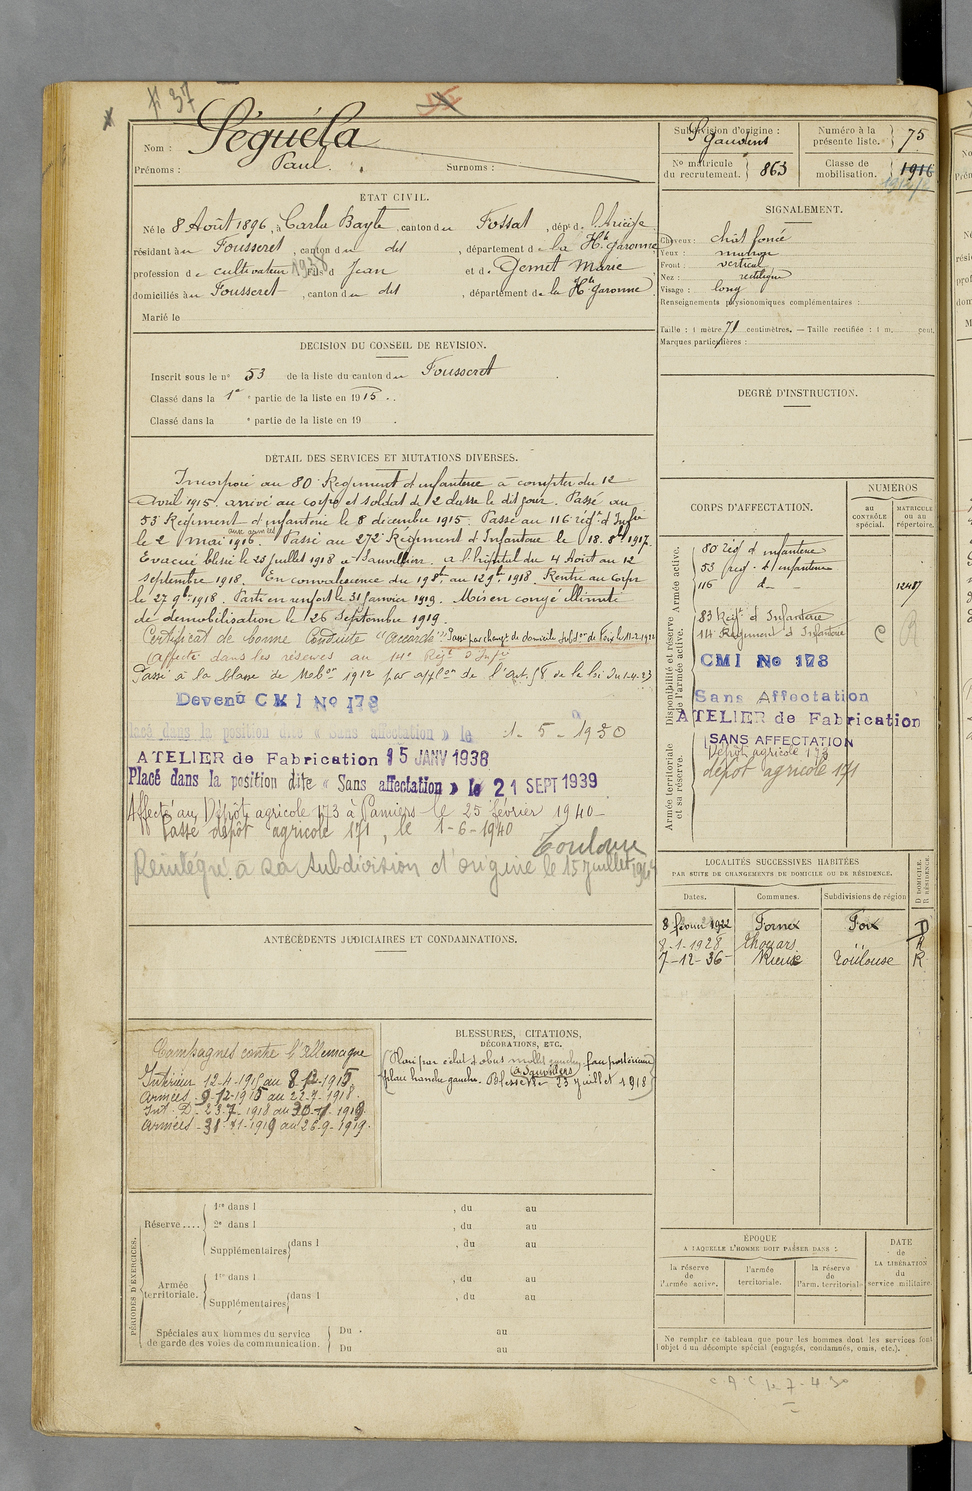 N° 37
Nom : Séguéla
Prénoms : Paul. Surnoms :
ÉTAT CIVIL.
Né le 8 Août 1896, à Carla Bayle, canton du Fossat, dépt de l'Ariège
résidant à Fousseret, canton du dit, département de la Hte Garonne
profession de cultivateur 1938 fils d Jean et de Gemet Marie
domiciliés à Fousseret, canton du dit, département de la Hte Garonne
Marié le
DÉCISION DU CONSEIL DE REVISION.
Inscrit sous le n° 53 de la liste du canton du Fousseret
Classé dans la 1e partie de la liste en 1915.
Classé dans la e partie de la liste en 19 .
DÉTAIL DES SERVICES ET MUTATIONS DIVERSES.
Incorporé au 80 Régiment d'infanterie à compter du 12
Avril 1915. arrivé au corps et soldat de 2 classe le dit jour. Passé au
53 Régiment d'infanterie le 8 décembre 1915. Passé au 116 régt d'Infie
aux armées
le 2 mai 1916. Passé au 272e Régiment d'Infanterie le 18. 8bre 1917.
Evacué blessé le 23 juillet 1918 à Sauvillers. a l'hôpital du 4 Août au 12
septembre 1918. En convalescence du 19 8bre au 12 9bre 1918. Rentré au Corps
le 27 9bre 1918. Parti en renfort le 31 janvier 1919. Mis en congé illimité
de démobilisation le 26 Septembre 1919.
Certificat de bonne Conduite "Accordé" Passé par changt de domicile subdon de Foix le 11-2-1922
Affecté dans les réserves au 14e Régt d'Infie
Passé à la classe de Mobon 1912 par applon de l'Art. 58 de la loi du 1-4-23
Devenu CMI No 178
Placé dans la position dite « Sans affectation » le 1 - 5 - 1930
ATELIER de Fabrication 15 JANV 1938
Placé dans la position dite « Sans affectation » le 21 SEPT 1939
Affecté au Dépôt agricole 173 à Pamiers le 25 février 1940
Passé dépôt agricole 171, le 1-6-1940
Toulouse
Réintégré à sa subdivision d'origine le 15 juillet
ANTÉCÉDENTS JUDICIAIRES ET CONDAMNATIONS.
Campagnes contre l'Allemagne
Intérieur 12-4-1915 au 8-12-1915.
Armées - 9-12-1915 au 22-7-1918.
Int. D - 23-7-1918 au 30-1-1919.
Armées - 31-1-1919 au 26-9-1919.
BLESSURES, CITATIONS,
DÉCORATIONS, ETC.
Plaie par éclat d'obus mollet gauche, face postérieure
à Sauvillers
plaie hanche gauche. Blessé le 23 juillet 1918
PÉRIODES D'EXERCICES.
Réserve....
1re dans l , du au
2e dans l , du au
Supplémentaires dans l , du au
Armée territoriale.
1re dans l , du au
Supplémentaires dans l , du au
Spéciales aux hommes du service
de garde des voies de communication.
Du au
Du au
Subdivision d'origine :
St Gaudens
Numéro à la
présente liste. 75
No matricule
du recrutement. 863
Classe de
mobilisation. 1916
SIGNALEMENT.
Cheveux : chât foncé
Yeux : marron
Front : vertical
Nez : rectiligne
Visage : long
Renseignements physionomiques complémentaires :
Taille : 1 mètre 71 centimètres. — Taille rectifiée : 1 m. cent.
Marques particulières :
DEGRÉ D'INSTRUCTION.
CORPS D'AFFECTATION.
NUMÉROS
au
CONTRÔLE
spécial.
MATRICULE
ou au
répertoire.
Armée active.
80 rég d'infanterie
53 rég. d'infanterie
116 d°
Disponibilité et réserve
de l'armée active.
83 Régt d'Infanterie
14e Régiment d'Infanterie
C
CMI No 178
Sans Affectation
ATELIER de Fabrication
Armée territoriale
et sa réserve.
SANS AFFECTATION
Dépôt agricole 173
dépôt agricole 171
LOCALITÉS SUCCESSIVES HABITÉES
PAR SUITE DE CHANGEMENTS DE DOMICILE OU DE RÉSIDENCE.
D DOMICILE.
R RÉSIDENCE.
Dates. Communes. Subdivisions de région
8 février 1922 Fornex Foix D
8-1-1928 Thouars " R
7-12-36 Rieux Toulouse R
ÉPOQUE
A LAQUELLE L'HOMME DOIT PASSER DANS :
la réserve
de
l'armée active.
l'armée
territoriale.
la réserve
de
l'arm. territoriale
DATE
de
LA LIBÉRATION
du
service militaire.
Ne remplir ce tableau que pour les hommes dont les services font
l'objet d'un décompte spécial (engagés, condamnés, omis, etc.).